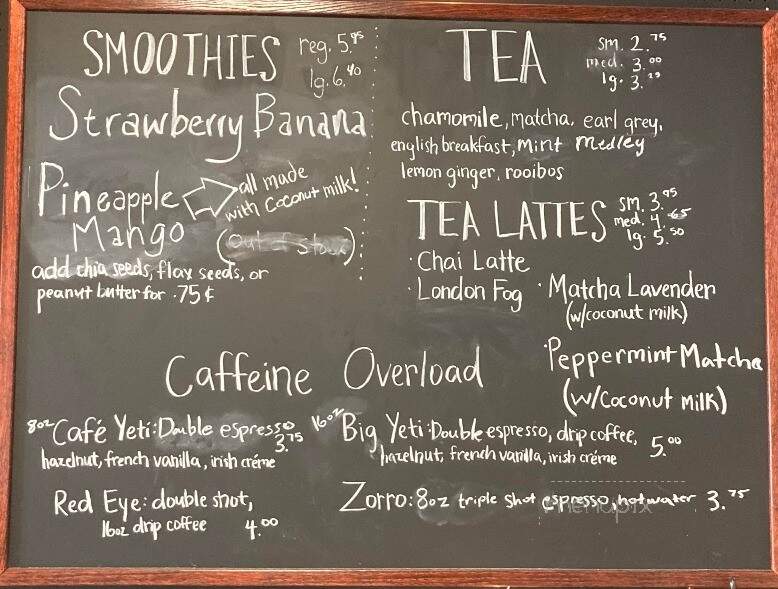 SMOOTHIES reg. 5.95
lg. 6.40
Strawberry Banana
Pineapple
Mango
all made
with Coconut milk!
(out of stock)
add chia seeds, flax seeds, or
peanut butter for .75¢
TEA sm. 2.75
med. 3.00
lg. 3.25
chamomile, matcha, earl grey,
english breakfast, mint medley
lemon ginger, rooibos
TEA LATTES sm. 3.95
med. 4.65
lg. 5.50
· Chai Latte
· London Fog
· Matcha Lavender
(w/coconut milk)
· Peppermint Matcha
(w/Coconut milk)
Caffeine Overload
8oz Café Yeti: Double espresso, 3.75
hazelnut, french vanilla, irish créme
Red Eye: double shot,
16oz drip coffee 4.00
16oz Big Yeti: Double espresso, drip coffee, 5.00
hazelnut, french vanilla, irish créme
Zorro: 8oz triple shot espresso, hot water 3.75